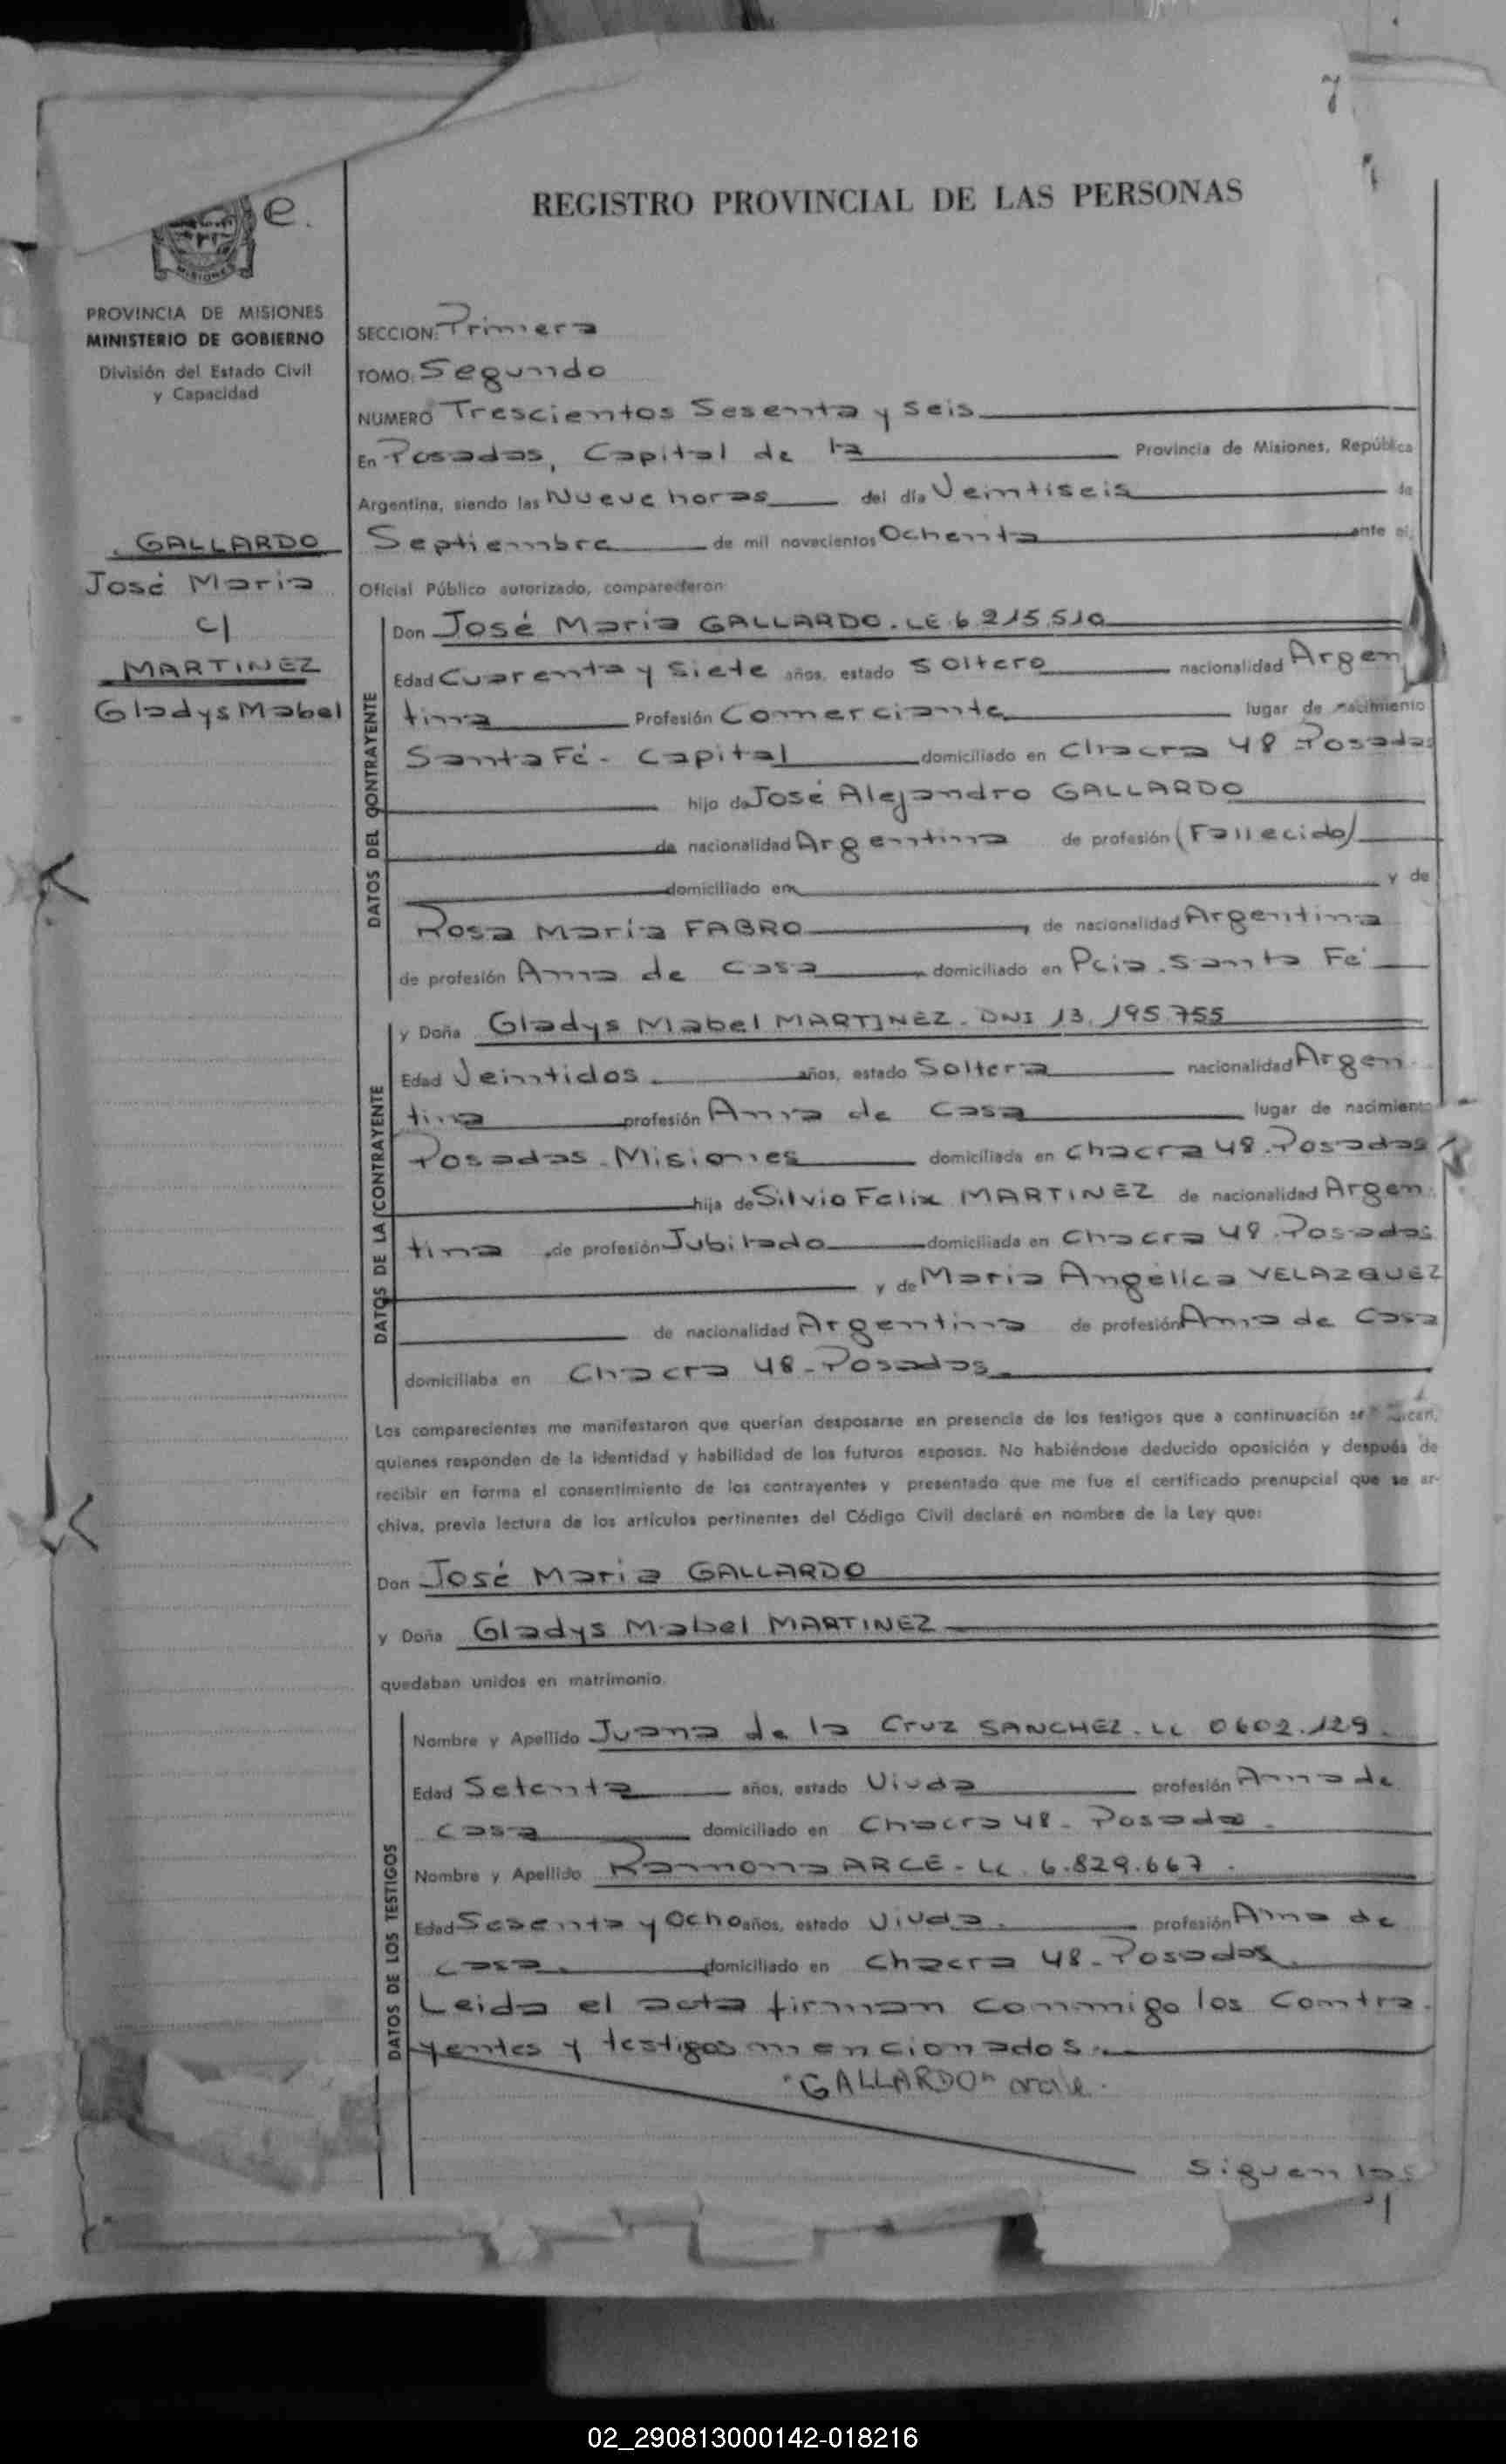 7
REGISTRO PROVINCIAL DE LAS PERSONAS
e.
MISIONES
PROVINCIA DE MISIONES
MINISTERIO DE GOBIERNO
División del Estado Civil
y Capacidad
GALLARDO
José Maria
c/
MARTINEZ
Gladys Mabel
SECCION: Primera
TOMO: Segundo
NUMERO Trescientos Sesenta y seis
En Posadas, Capital de la Provincia de Misiones, República
Argentina, siendo las Nueve horas del día Veintiseis de
Septiembre de mil novecientos Ochenta ante el
Oficial Público autorizado, comparecieron
DATOS DEL CONTRAYENTE
Don José Maria GALLARDO. LE 6 215.510
Edad Cuarenta y Siete años, estado Soltero nacionalidad Argen
tina Profesión Comerciante lugar de nacimiento
Santa Fé - Capital domiciliado en Chacra 48 Posadas
hijo de José Alejandro GALLARDO
de nacionalidad Argentina de profesión (Fallecido)
domiciliado en y de
Rosa María FABRO, de nacionalidad Argentina
de profesión Ama de Casa, domiciliado en Pcia. Santa Fé
DATOS DE LA CONTRAYENTE
y Doña Gladys Mabel MARTINEZ - DNI 13.195.755
Edad Veintidos años, estado Soltera nacionalidad Argen
tina profesión Ama de Casa lugar de nacimiento
Posadas. Misiones domiciliada en Chacra 48. Posadas
hija de Silvio Felix MARTINEZ de nacionalidad Argen
tina, de profesión Jubilado domiciliada en Chacra 48. Posadas
y de Maria Angélica VELAZQUEZ
de nacionalidad Argentina de profesión Ama de Casa
domiciliaba en Chacra 48 - Posadas.
Los comparecientes me manifestaron que querían desposarse en presencia de los testigos que a continuación se
quienes responden de la identidad y habilidad de los futuros esposos. No habiéndose deducido oposición y después de
recibir en forma el consentimiento de los contrayentes y presentado que me fue el certificado prenupcial que se ar-
chiva, previa lectura de los artículos pertinentes del Código Civil declaré en nombre de la Ley que:
Don José Maria GALLARDO
y Doña Gladys Mabel MARTINEZ
quedaban unidos en matrimonio.
DATOS DE LOS TESTIGOS
Nombre y Apellido Juana de la Cruz SANCHEZ. LC 0602.129.
Edad Setenta años, estado Viuda profesión Ama de
Casa domiciliado en Chacra 48 - Posadas.
Nombre y Apellido Ramona ARCE - LC. 6.829.667.
Edad Sesenta y Ocho años, estado Viuda. profesión Ama de
casa. domiciliado en Chacra 48 - Posadas.
Leida el acta firman conmigo los Contra
yentes y testigos mencionados.
"GALLARDO" vale.
Siguen las
02_290813000142-018216